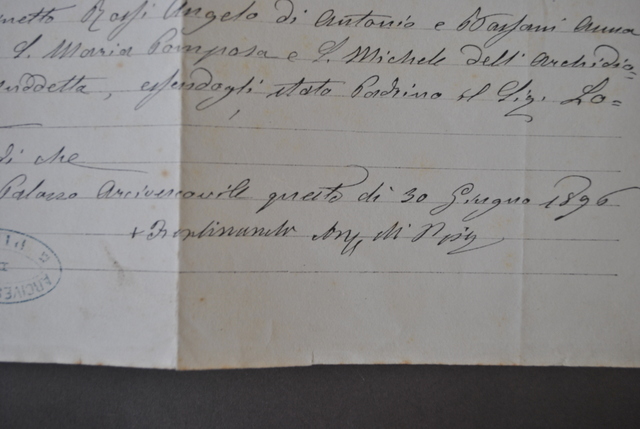 metto Rossi Angelo di Antonio e Bassani Anna
S. Maria Pomposa e S. Michele dell' Archidio=
suddetta, essendogli stato Padrino il Sig. Lo=
di che
Palazzo Arcivescovile questo di 30 Giugno 1896
+ Ferdinando Arc. di